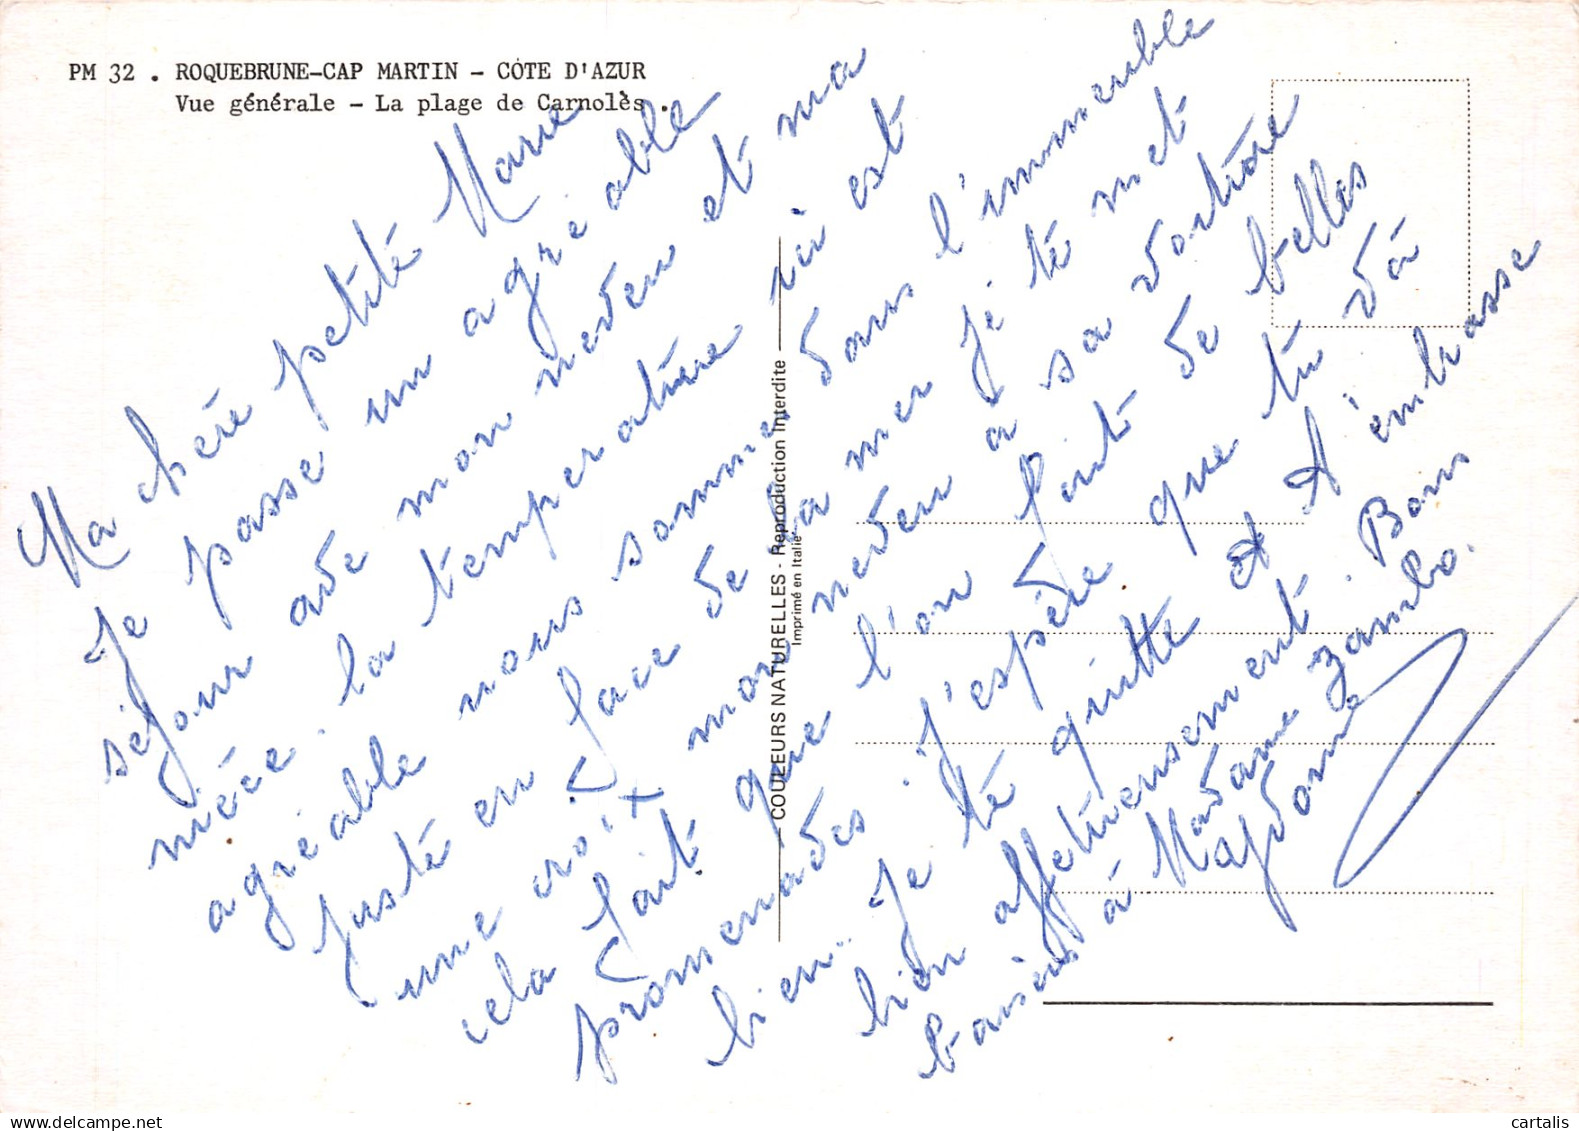 PM 32 . ROQUEBRUNE-CAP MARTIN - CÔTE D'AZUR
Vue générale - La plage de Carnolès.
Ma chère petite Marie
Je passe un agréable
séjour avec mon neveu et ma
nièce. la température ici est
agréable nous sommes dans l'immeuble
juste en face de la mer je te met
une croix X mon neveu a sa voiture
cela fait que l'on fait de belles
promenades. J'espère que tu va
bien. Je te quitte et t'embrasse
bien affectueusement. Bons
baisers à Madame Zambo.
COULEURS NATURELLES - Reproduction Interdite
Imprimé en Italie
cartalis
delcampe.net